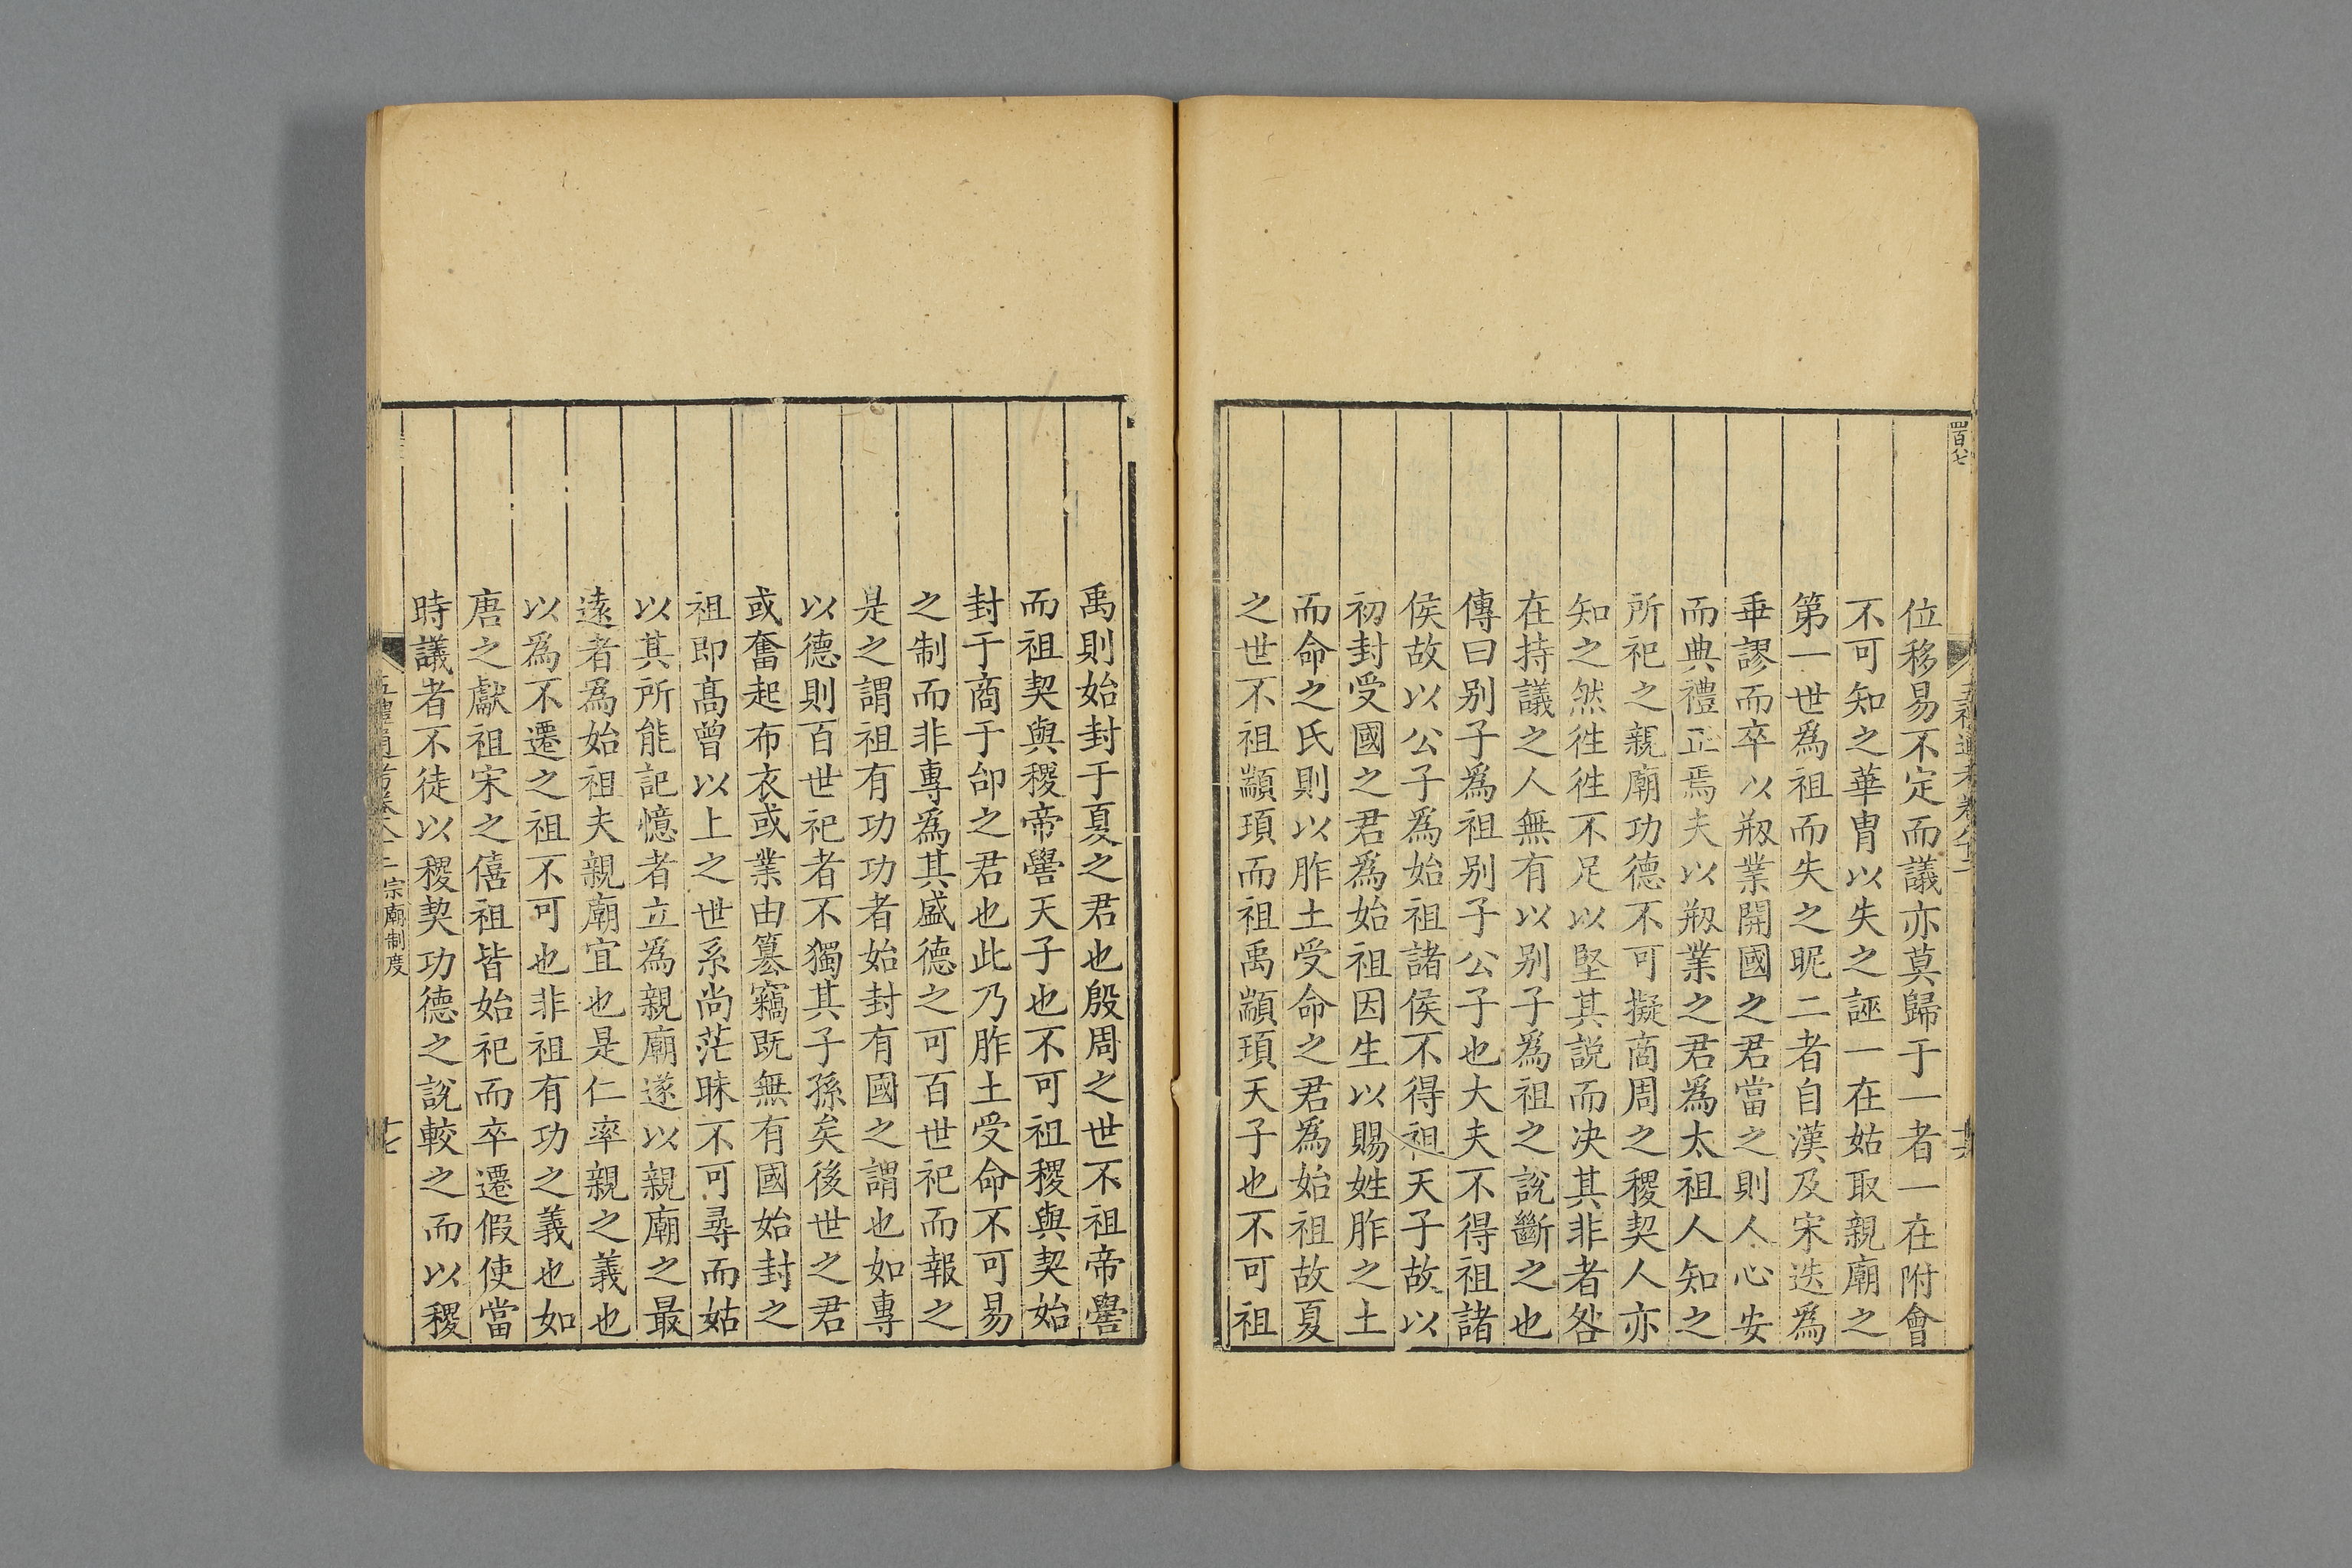 位移易不定而議亦莫歸于一者一在附會
不可知之華胄以失之誣一在姑取親廟之
第一世爲祖而失之昵二者自漢及宋迭爲
乖謬而卒以剏業開國之君當之則人心安
而典禮正焉夫以剏業之君爲太祖人知之
所祀之親廟功德不可擬商周之稷契人亦
知之然徃徃不足以堅其説而决其非者咎
在持議之人無有以别子爲祖之說斷之也
傳曰别子爲祖别子公子也大夫不得祖諸
侯故以公子爲始祖諸侯不得祖天子故以
初封受國之君爲始祖因生以賜姓胙之土
而命之氏則以胙土受命之君爲始祖故夏
之世不祖顓頊而祖禹顓頊天子也不可祖
禹則始封于夏之君也殷周之世不祖帝嚳
而祖契與稷帝嚳天子也不可祖稷與契始
封于商于邰之君也此乃胙土受命不可易
之制而非專爲其盛德之可百世祀而報之
是之謂祖有功功者始封有國之謂也如專
以德則百世祀者不獨其子孫矣後世之君
或奮起布衣或業由篡竊既無有國始封之
祖即髙曾以上之世系尚茫昧不可尋而姑
以其所能記憶者立爲親廟遂以親廟之最
遠者爲始祖夫親廟宜也是仁率親之義也
以爲不遷之祖不可也非祖有功之義也如
唐之獻祖宋之僖祖皆始祀而卒遷假使當
時議者不徒以稷契功德之說較之而以稷
五禮通考卷 宗廟制度